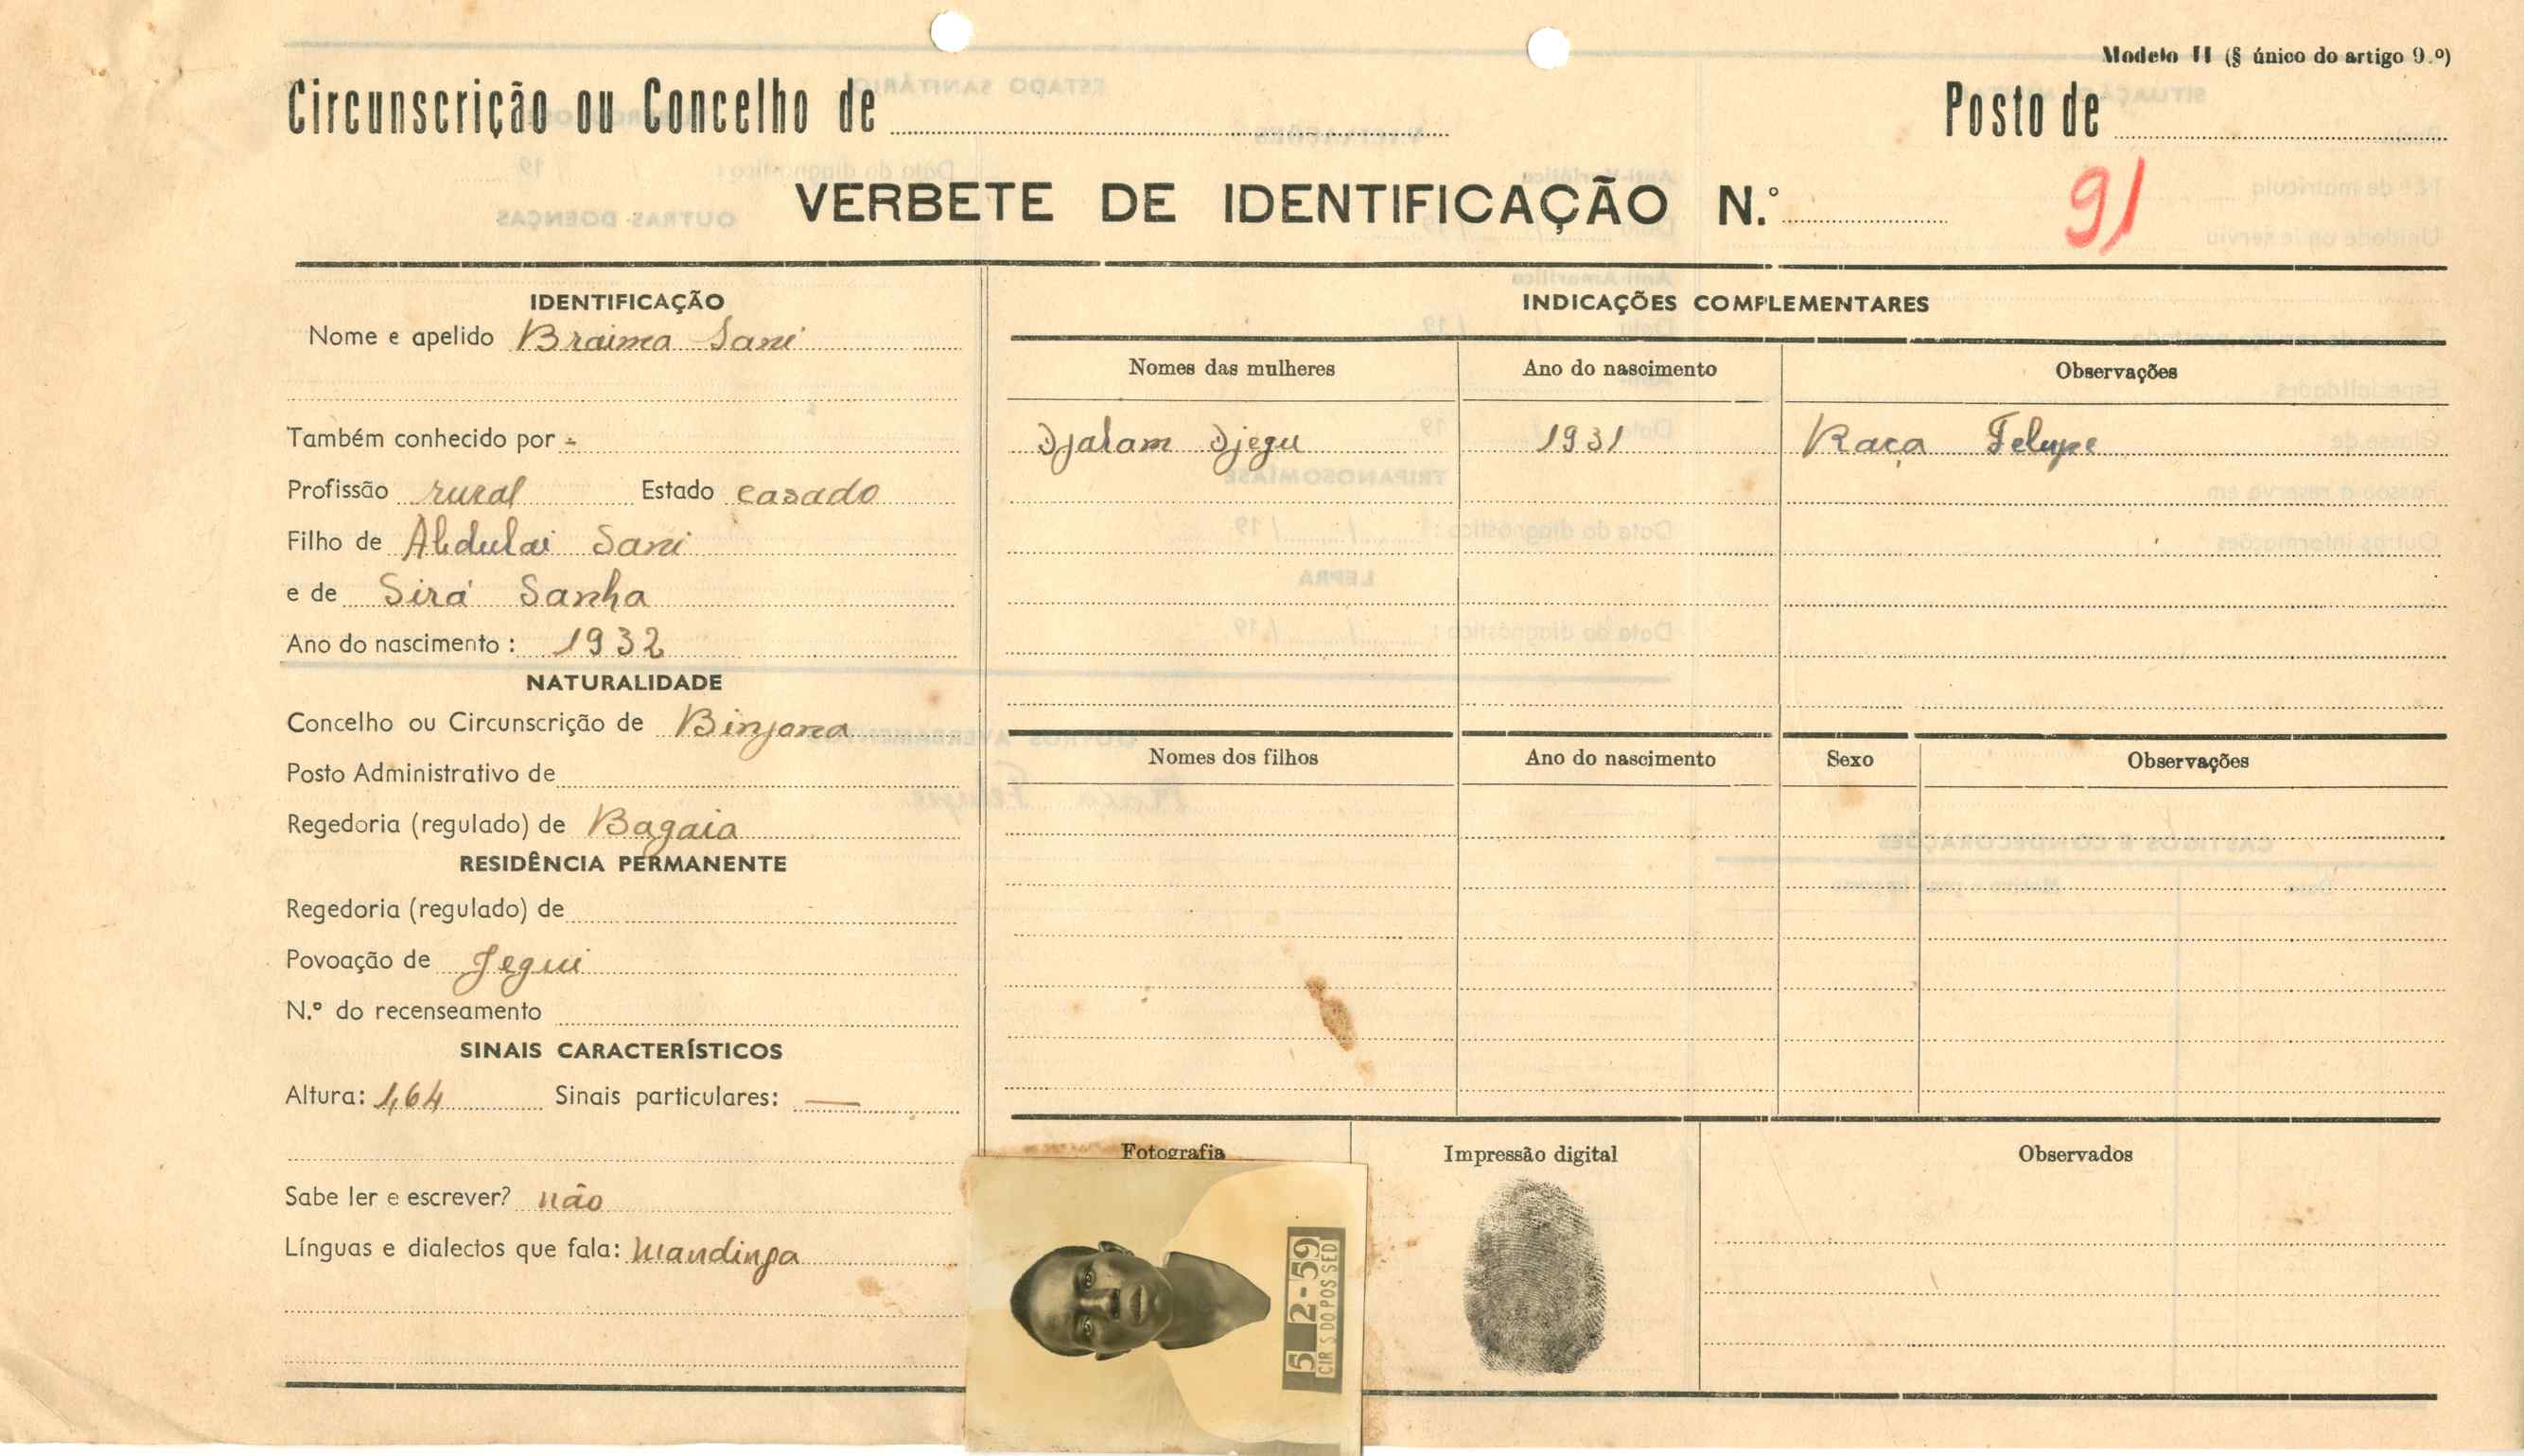 Modelo II (§ único do artigo 9.º)
Circunscrição ou Concelho de Posto de
VERBETE DE IDENTIFICAÇÃO N.º 91
IDENTIFICAÇÃO
Nome e apelido Braima Sani
Também conhecido por -
Profissão rural Estado casado
Filho de Abdulai Sani
e de Sirá Sanha
Ano do nascimento: 1932
NATURALIDADE
Concelho ou Circunscrição de Binjona
Posto Administrativo de
Regedoria (regulado) de Bagaia
RESIDÊNCIA PERMANENTE
Regedoria (regulado) de
Povoação de Jegui
N.º do recenseamento
SINAIS CARACTERÍSTICOS
Altura: 1,64 Sinais particulares: —
Sabe ler e escrever? não
Línguas e dialectos que fala: Mandinga
INDICAÇÕES COMPLEMENTARES
Nomes das mulheres Ano do nascimento Observações
Djalam Djegu 1931 Raça Felupe
Nomes dos filhos Ano do nascimento Sexo Observações
Fotografia Impressão digital Observados
5 2-59
CIR S DO POS SED